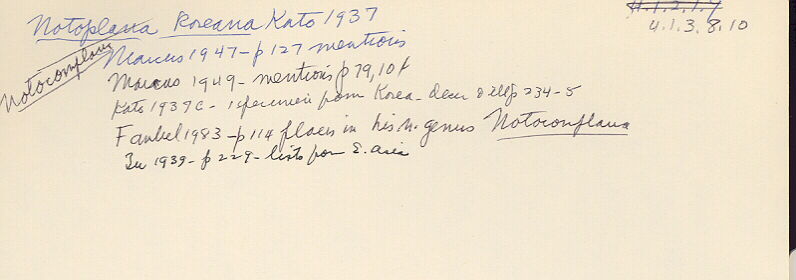 4.1.2.1.4
Notoplana koreana Kato 1937
4.1.3.8.10
Notocomplana
Marcus 1947 - p 127 mentions
Marcus 1949 - mentions p 79, 101
Kato 1937c - 1 specimen from Korea - descr & ill p 234-5
Faubel 1983 - p 114 places in his n. genus Notocomplana
1939 - p 229 - lists from E. Asia